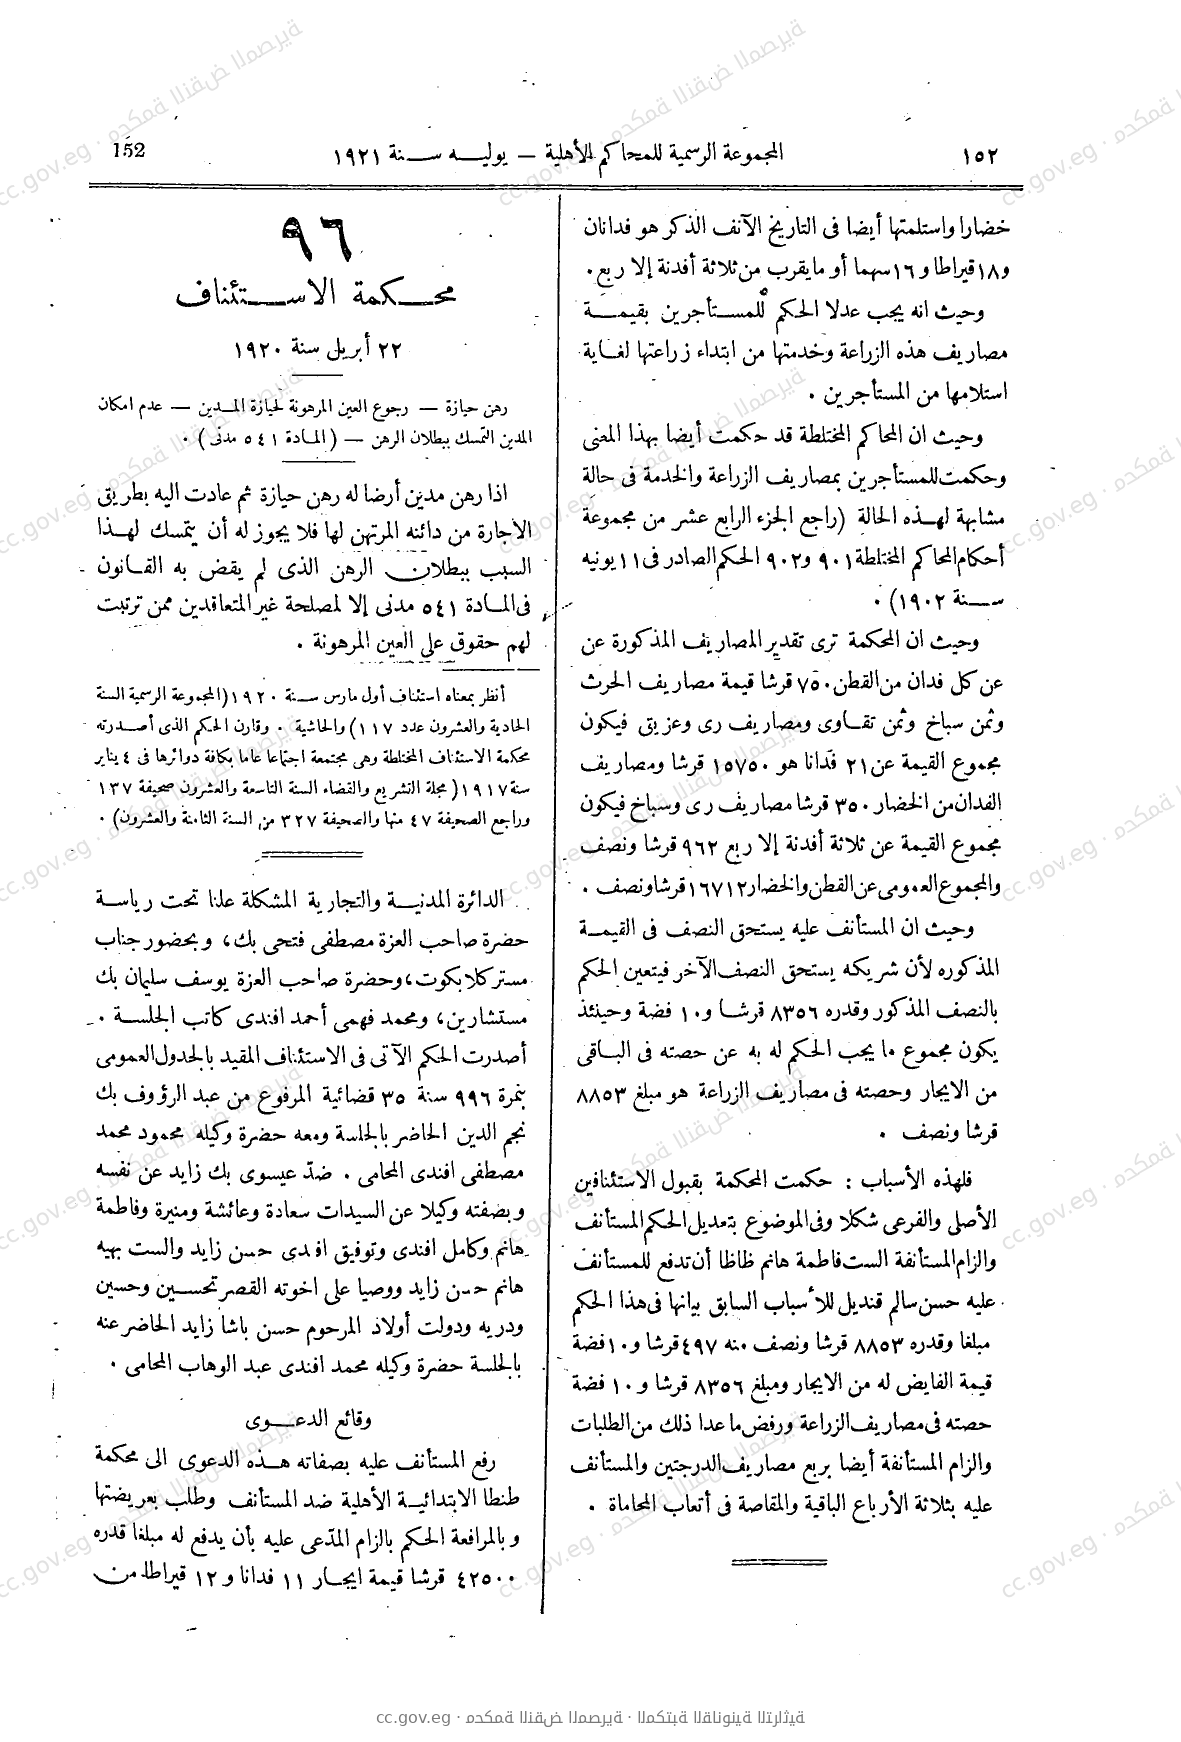 ١٥٢
المجموعة الرسمية للمحاكم الأهلية — يوليه سنة ١٩٢١
152
خضارا واستلمتها أيضا فى التاريخ الآنف الذكر هو فدانان
و١٨ قيراطا و١٦ سهما أو ما يقرب من ثلاثة أفدنة إلا ربع.
وحيث انه يجب عدلا الحكم للمستأجرين بقيمة
مصاريف هذه الزراعة وخدمتها من ابتداء زراعتها لغاية
استلامها من المستأجرين .
وحيث ان المحاكم المختلطة قد حكمت أيضا بهذا المعنى
وحكمت للمستأجرين بمصاريف الزراعة والخدمة فى حالة
مشابهة لهذه الحالة (راجع الجزء الرابع عشر من مجموعة
أحكام المحاكم المختلطة ٩٠١ و٩٠٢ الحكم الصادر فى ١١ يونيه
سنة ١٩٠٢) .
وحيث ان المحكمة ترى تقدير المصاريف المذكورة عن
عن كل فدان من القطن ٧٥٠ قرشا قيمة مصاريف الحرث
وثمن سباخ وثمن تقاوى ومصاريف رى وعزيق فيكون
مجموع القيمة عن ٢١ فدانا هو ١٥٧٥٠ قرشا ومصاريف
الفدان من الخضار ٣٥٠ قرشا مصاريف رى وسباخ فيكون
مجموع القيمة عن ثلاثة أفدنة إلا ربع ٩٦٢ قرشا ونصف
والمجموع العمومى عن القطن والخضار ١٦٧١٢ قرشا ونصف .
وحيث ان المستأنف عليه يستحق النصف فى القيمة
المذكوره لأن شريكه يستحق النصف الآخر فيتعين الحكم
بالنصف المذكور وقدره ٨٣٥٦ قرشا و١٠ فضة وحينئذ
يكون مجموع ما يجب الحكم له به عن حصته فى الباقى
من الايجار وحصته فى مصاريف الزراعة هو مبلغ ٨٨٥٣
قرشا ونصف .
فلهذه الأسباب : حكمت المحكمة بقبول الاستئنافين
الأصلى والفرعى شكلا وفى الموضوع بتعديل الحكم المستأنف
والزام المستأنفة الست فاطمة هانم ظاظا أن تدفع للمستأنف
عليه حسن سالم قنديل للأسباب السابق بيانها فى هذا الحكم
مبلغا وقدره ٨٨٥٣ قرشا ونصف منه ٤٩٧ قرشا و١٠ فضة
قيمة الفايض له من الايجار ومبلغ ٨٣٥٦ قرشا و١٠ فضة
حصته فى مصاريف الزراعة ورفض ما عدا ذلك من الطلبات
والزام المستأنفة أيضا بربع مصاريف الدرجتين والمستأنف
عليه بثلاثة الأرباع الباقية والمقاصة فى أتعاب المحاماة .
٩٦
محكمة الاستئناف
٢٢ أبريل سنة ١٩٢٠
رهن حيازة — رجوع العين المرهونة لحيازة المدين — عدم امكان
المدين التمسك ببطلان الرهن — (المادة ٥٤١ مدنى) .
اذا رهن مدين أرضا له رهن حيازة ثم عادت اليه بطريق
الاجارة من دائنه المرتهن لها فلا يجوز له أن يتمسك لهذا
السبب ببطلان الرهن الذى لم يقض به القانون
فى المادة ٥٤١ مدنى إلا لمصلحة غير المتعاقدين ممن ترتبت
لهم حقوق على العين المرهونة .
أنظر بمعناه استئناف أول مارس سنة ١٩٢٠ (المجموعة الرسمية السنة
الحادية والعشرون عدد ١١٧) والحاشية . وقارن الحكم الذى أصدرته
محكمة الاستئناف المختلطة وهى مجتمعة اجتماعا عاما بكافة دوائرها فى ٤ يناير
سنة ١٩١٧ (مجلة التشريع والقضاء السنة التاسعة والعشرون صحيفة ١٣٧
وراجع الصحيفة ٤٧ منها والصحيفة ٣٢٧ من السنة الثامنة والعشرون) .
الدائرة المدنية والتجارية المشكلة علنا تحت رياسة
حضرة صاحب العزة مصطفى فتحى بك، وبحضور جناب
مستر كلايكوت، وحضرة صاحب العزة يوسف سليمان بك
مستشارين، ومحمد فهمى أحمد افندى كاتب الجلسة .
أصدرت الحكم الآتى فى الاستئناف المقيد بالجدول العمومى
بنمرة ٩٩٦ سنة ٣٥ قضائية المرفوع من عبد الرؤوف بك
نجم الدين الحاضر بالجلسة ومعه حضرة وكيله محمود محمد
مصطفى افندى المحامى . ضدّ عيسوى بك زايد عن نفسه
وبصفته وكيلا عن السيدات سعادة وعائشة ومنيرة وفاطمة
هانم وكامل افندى وتوفيق افندى حسن زايد والست بهيه
هانم حسن زايد ووصيا على اخوته القصر تحسين وحسين
ودريه ودولت أولاد المرحوم حسن باشا زايد الحاضر عنه
بالجلسة حضرة وكيله محمد افندى عبد الوهاب المحامى .
وقائع الدعوى
رفع المستأنف عليه بصفاته هذه الدعوى الى محكمة
طنطا الابتدائية الأهلية ضد المستأنف وطلب بعريضتها
وبالمرافعة الحكم بالزام المدّعى عليه بأن يدفع له مبلغا قدره
٤٢٥٠٠ قرشا قيمة ايجار ١١ فدانا و١٢ قيراطا من
cc.gov.eg · محكمة النقض المصرية · المكتبة القانونية التراثية